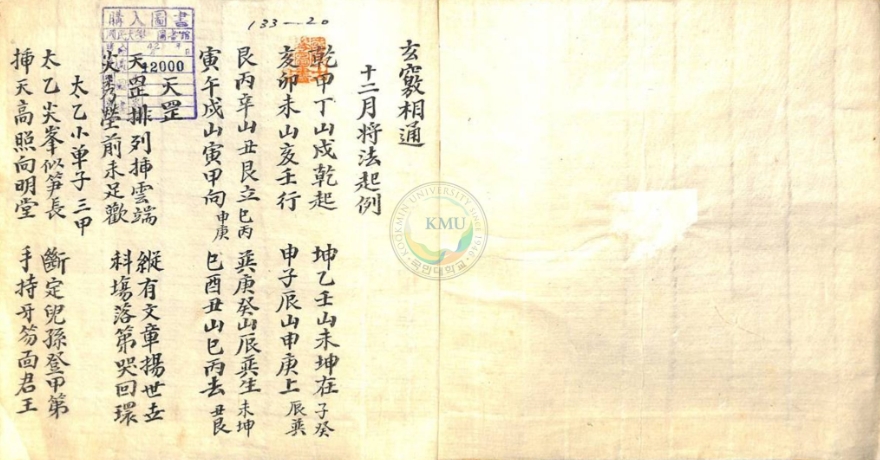 133-20
玄竅相通
十二月將法起例
乾甲丁山戌乾起 坤乙壬山未坤在 子癸
亥卯未山亥壬行 申子辰山申庚上 辰巽
艮丙辛山丑艮立 巳丙 巽庚癸山辰巽生 未坤
寅午戌山寅甲向 申庚 巳酉丑山巳丙去 丑艮
天罡
天罡排列揷雲端 縱有文章揚世立
尖秀塋前未足歡 科場落第哭回環
太乙小单子三甲
太乙尖峯似笋長 斷定兒孫登甲第
揷天高照向明堂 手持牙笏面君王
購入圖書
12000
KOOKMIN UNIVERSITY SINCE 1946
KMU
국민대학교